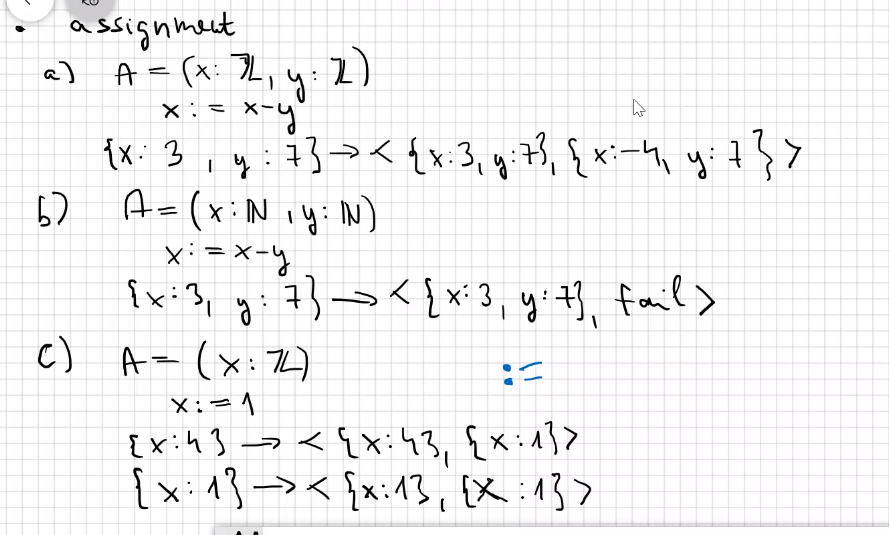 • assignment
a) A = (x: ℤ, y: ℤ)
x := x-y
{x: 3, y: 7} → < {x:3, y:7}, {x:-4, y: 7} >
b) A = (x: ℕ, y: ℕ)
x := x-y
{x:3, y: 7} → < {x:3, y:7}, fail >
c) A = (x: ℤ)
:=
x := 1
{x:4} → < {x:4}, {x:1} >
{x: 1} → < {x:1}, {x:1} >